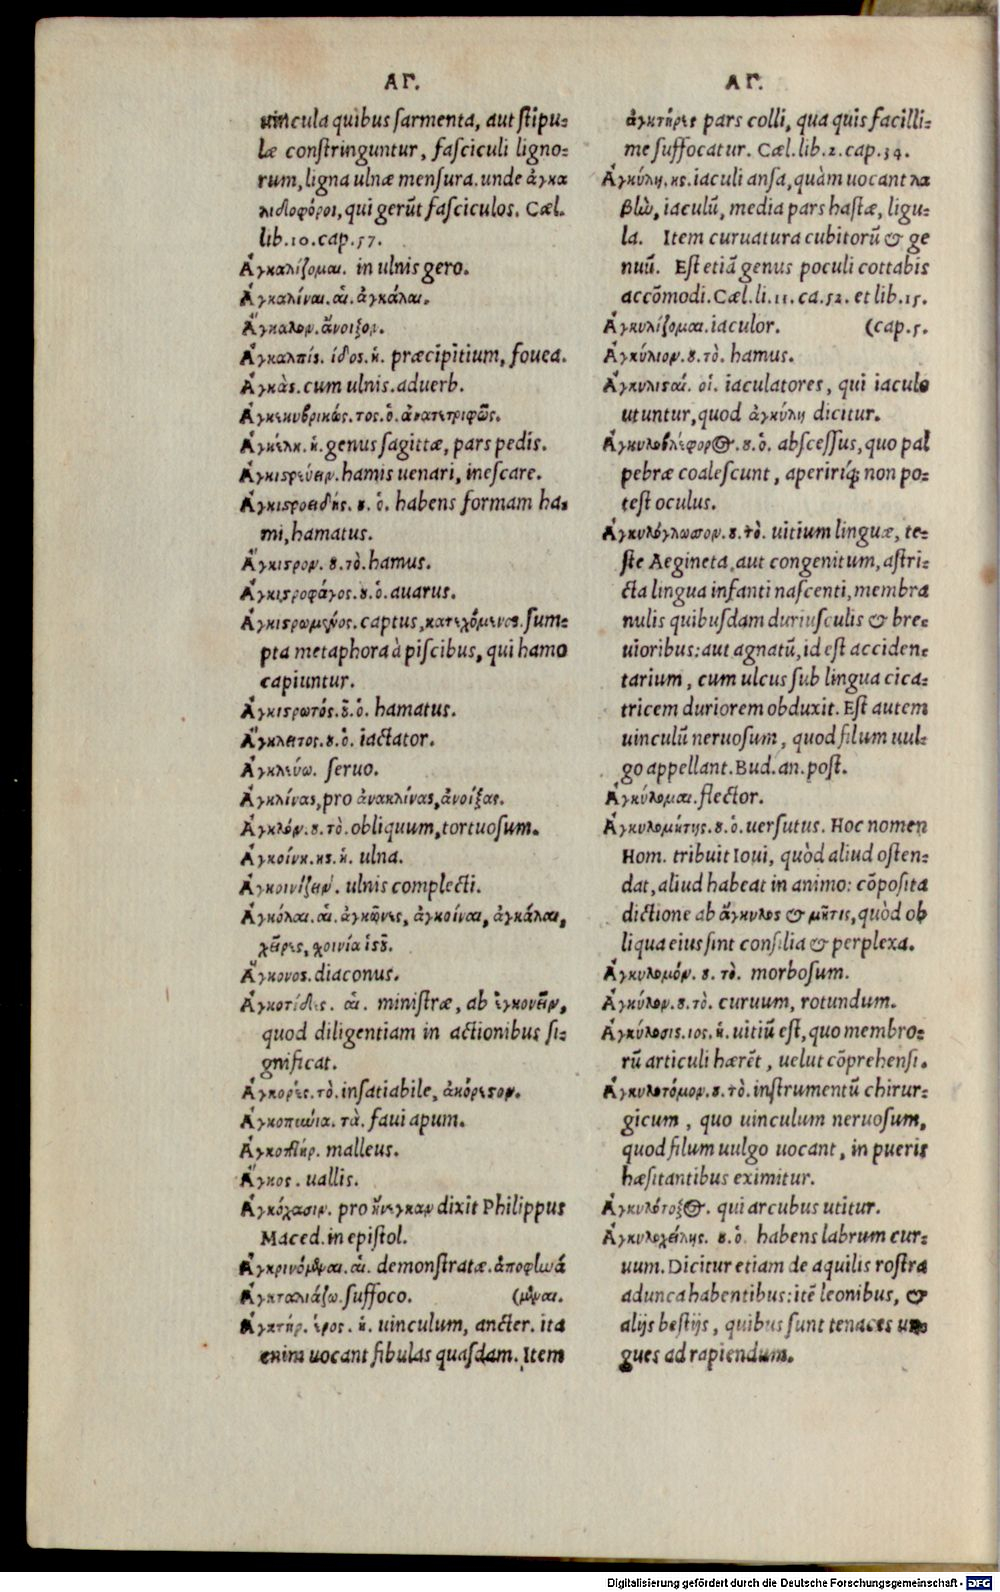 ΑΓ.
uincula quibus sarmenta, aut stipu-
læ constringuntur, fasciculi ligno-
rum, ligna ulnæ mensura. unde ἀγκα
λιδοφόροι, qui gerũt fasciculos. Cæl.
lib.10.cap.57.
Ἀγκαλίζομαι. in ulnis gero.
Ἀγκαλίναι. αἱ. ἀγκάλαι.
Ἄγκαλον. ἄνοιξον.
Ἀγκαλπίς. ίδος. ἡ. præcipitium, fouea.
Ἀγκὰς. cum ulnis. aduerb.
Ἀγκεκυβρικώς. τος. ὁ. ἀνατετριφῶς.
Ἀγκέλη. ἡ. genus sagittæ, pars pedis.
Ἀγκιστρεύειν. hamis uenari, inescare.
Ἀγκιστροειδής. ȣ. ὁ. habens formam ha-
mi, hamatus.
Ἄγκιστρον. ȣ. τὸ. hamus.
Ἀγκιστροφάγος. ȣ. ὁ. auarus.
Ἀγκιστρωμένος. captus, κατεχόμενος. sum-
pta metaphora à piscibus, qui hamo
capiuntur.
Ἀγκιστρωτός. ȣ͂. ὁ. hamatus.
Ἄγκλειτος. ȣ. ὁ. iactator.
Ἀγκλεύω. seruo.
Ἀγκλίνας, pro ἀνακλίνας, ἀνοίξας.
Ἀγκλόν. ȣ. τὸ. obliquum, tortuosum.
Ἀγκοίνη. ης. ἡ. ulna.
Ἀγκοινίζειν. ulnis complecti.
Ἀγκόλαι. αἱ. ἀγκῶνες, ἀγκοίναι, ἀγκάλαι,
χεῖρες, χοινία ἱστȣ͂.
Ἄγκονος. diaconus.
Ἀγκοτίδες. αἱ. ministræ, ab ἐγκονεῖν,
quod diligentiam in actionibus si-
gnificat.
Ἀγκορὲς. τὸ. insatiabile, ἀκόρεστον.
τὰ. faui apum.
malleus.
Ἄγκος. uallis.
Ἀγκόχασιν. pro ἤνεγκαν dixit Philippus
Maced. in epistol.
Ἀγκρινόμεναι. αἱ. demonstratæ. ἀποφηνά
Ἀγκταλιάζω. suffoco. (μεναι.
Ἀγκτήρ. έρος. ἡ. uinculum, ancter. ita
enim uocant fibulas quasdam. Item
ΑΓ.
ἀγκτῆρες pars colli, qua quis facilli-
me suffocatur. Cæl. lib.2. cap.34.
Ἀγκύλη. ης. iaculi ansa, quàm uocant λα
βὼ, iaculũ, media pars hastæ, ligu-
la. Item curuatura cubitorũ & ge
nuũ. Est etiã genus poculi cottabis
accõmodi. Cæl. li.11. ca.52. et lib.15.
Ἀγκυλίζομαι. iaculor. (cap.5.
Ἀγκύλιον. ȣ. τὸ. hamus.
Ἀγκυλισταί. οἱ. iaculatores, qui iaculo
utuntur, quod ἀγκύλη dicitur.
Ἀγκυλοβλέφορος. ȣ. ὁ. abscessus, quo pal
pebræ coalescunt, apeririq́; non po-
test oculus.
Ἀγκυλόγλωσσον. ȣ. τὸ. uitium linguæ, te-
ste Aegineta, aut congenitum, astri-
cta lingua infanti nascenti, membra
nulis quibusdam duriusculis & bre-
uioribus: aut agnatũ, id est acciden-
tarium, cum ulcus sub lingua cica-
tricem duriorem obduxit. Est autem
uinculũ neruosum, quod filum uul-
go appellant. Bud. an. post.
Ἀγκύλομαι. flector.
Ἀγκυλομήτης. ȣ. ὁ. uersutus. Hoc nomen
Hom. tribuit Ioui, quòd aliud osten-
dat, aliud habeat in animo: cõposita
dictione ab ἄγκυλος & μῆτις, quòd ob
liqua eius sint consilia & perplexa.
Ἀγκυλομόν. ȣ. τὸ. morbosum.
Ἀγκύλον. ȣ. τὸ. curuum, rotundum.
Ἀγκύλοσις. ιος. ἡ. uitiũ est, quo membro-
rũ articuli hærẽt, uelut cõprehensi.
Ἀγκυλοτόμον. ȣ. τὸ. instrumentũ chirur-
gicum, quo uinculum neruosum,
quod filum uulgo uocant, in pueris
hæsitantibus eximitur.
Ἀγκυλότοξος. qui arcubus utitur.
Ἀγκυλοχείλης. ȣ. ὁ. habens labrum cur-
uum. Dicitur etiam de aquilis rostra
adunca habentibus: itẽ leonibus, &
alijs bestijs, quibus sunt tenaces un
gues ad rapiendum.
Digitalisierung gefördert durch die Deutsche Forschungsgemeinschaft - DFG